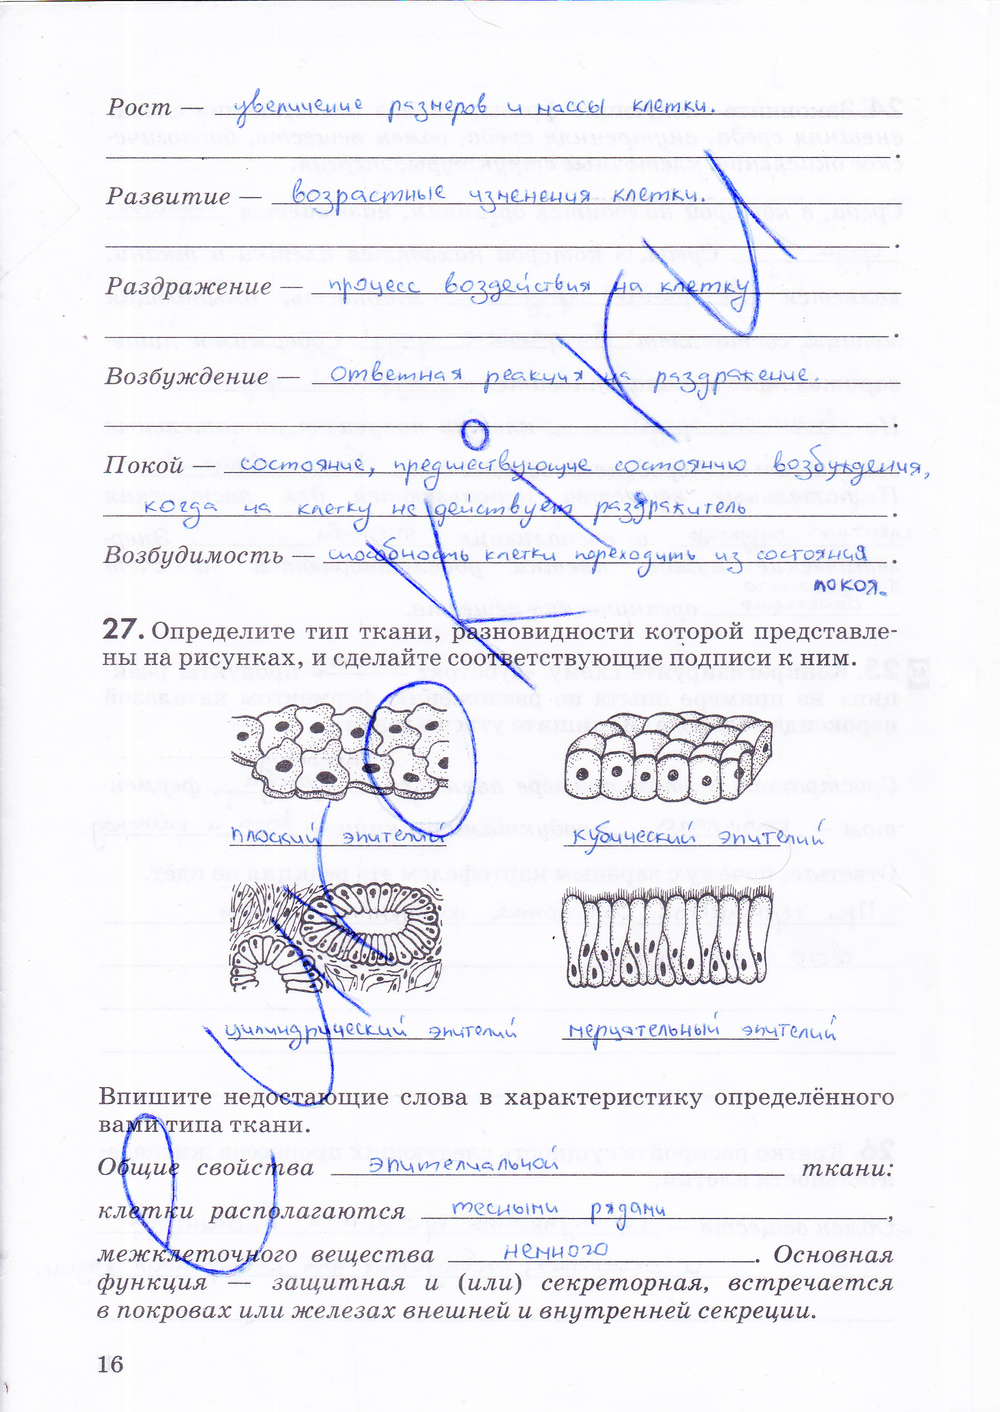 Рост — увеличение размеров и массы клетки.
Развитие — возрастные изменения клетки.
Раздражение — процесс воздействия на клетку
Возбуждение — ответная реакция на раздражение.
Покой — состояние, предшествующие состоянию возбуждения,
когда на клетку не действует раздражитель
Возбудимость — способность клетки переходить из состояния
покоя.
27. Определите тип ткани, разновидности которой представле-
ны на рисунках, и сделайте соответствующие подписи к ним.
плоский эпителий
кубический эпителий
цилиндрический эпителий
мерцательный эпителий
Впишите недостающие слова в характеристику определённого
вами типа ткани.
Общие свойства эпителиальной ткани:
клетки располагаются тесными рядами,
межклеточного вещества немного. Основная
функция — защитная и (или) секреторная, встречается
в покровах или железах внешней и внутренней секреции.
16